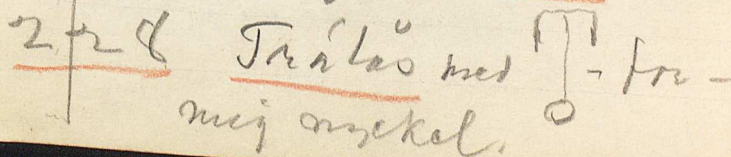 2728 Trälås med - for-
mig nyckel.